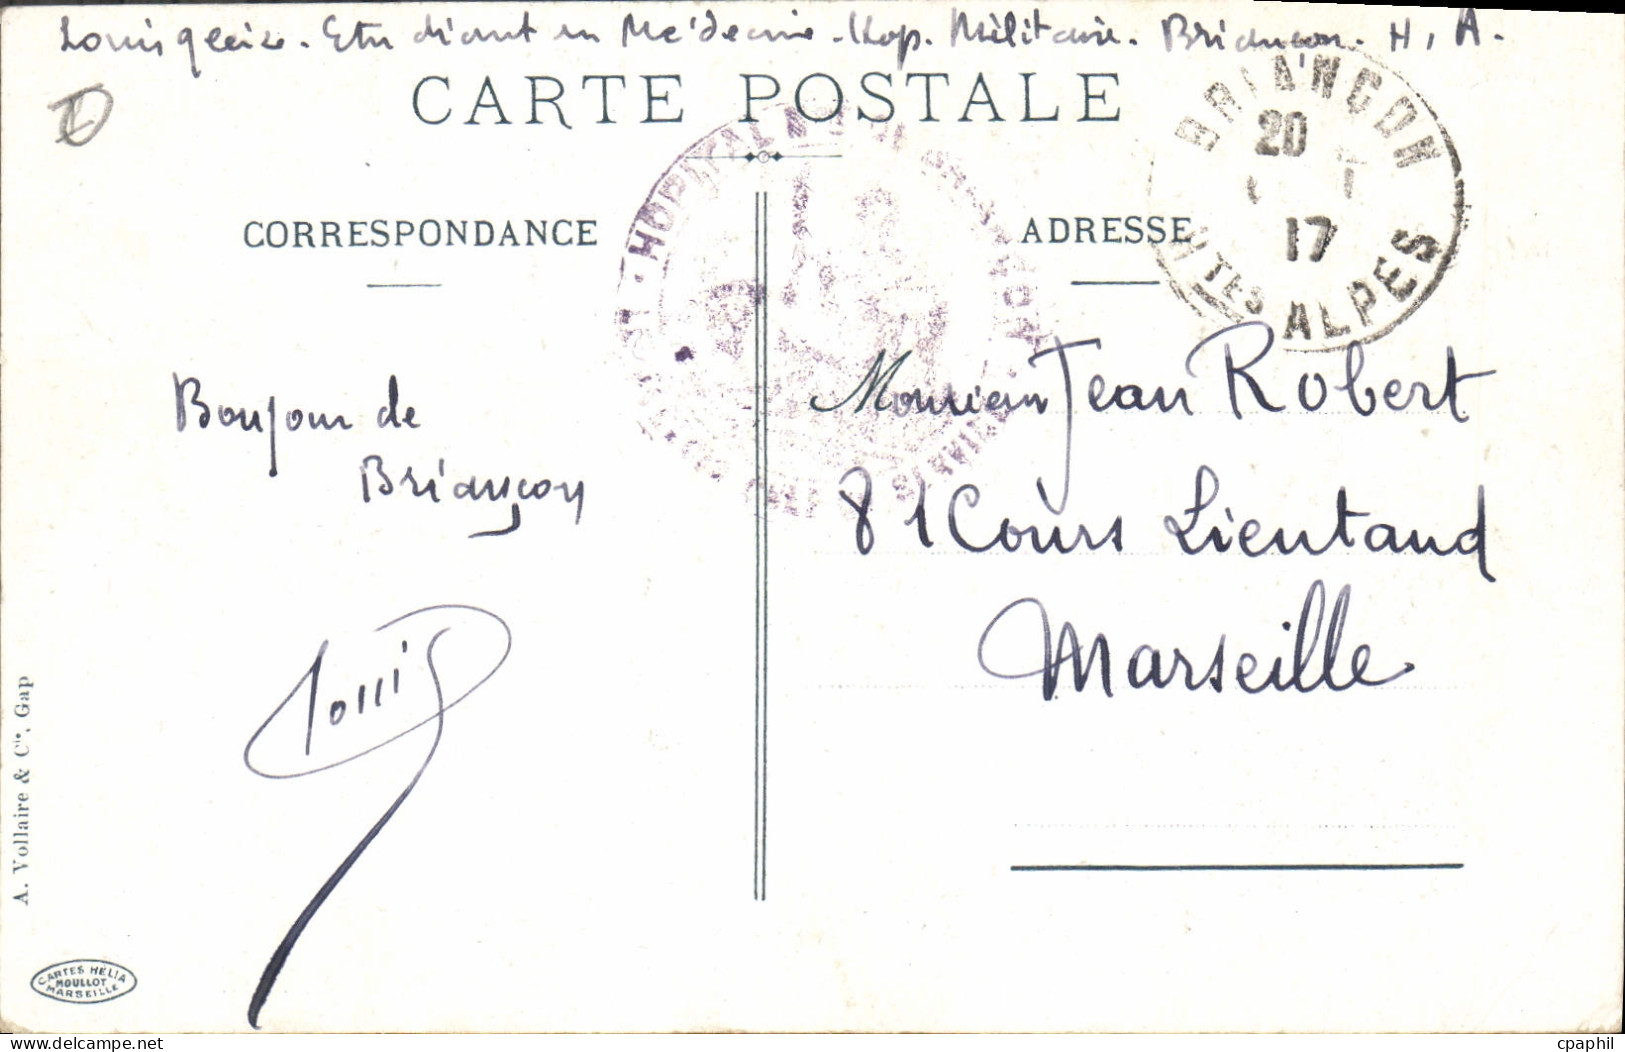 Louis gleize. Etudiant en Médecine. Hop. Militaire. Briançon. H. A.
CARTE POSTALE
BRIANÇON
20
17
HTES ALPES
HOPITAL
CORRESPONDANCE
ADRESSE
Bonjour de
Briançon
Louis
Monsieur Jean Robert
81 Cours Lieutaud
Marseille
A. Vollaire & Cie, Gap
CARTES HELIA
MOULLOT
MARSEILLE
delcampe.net
cpaphil